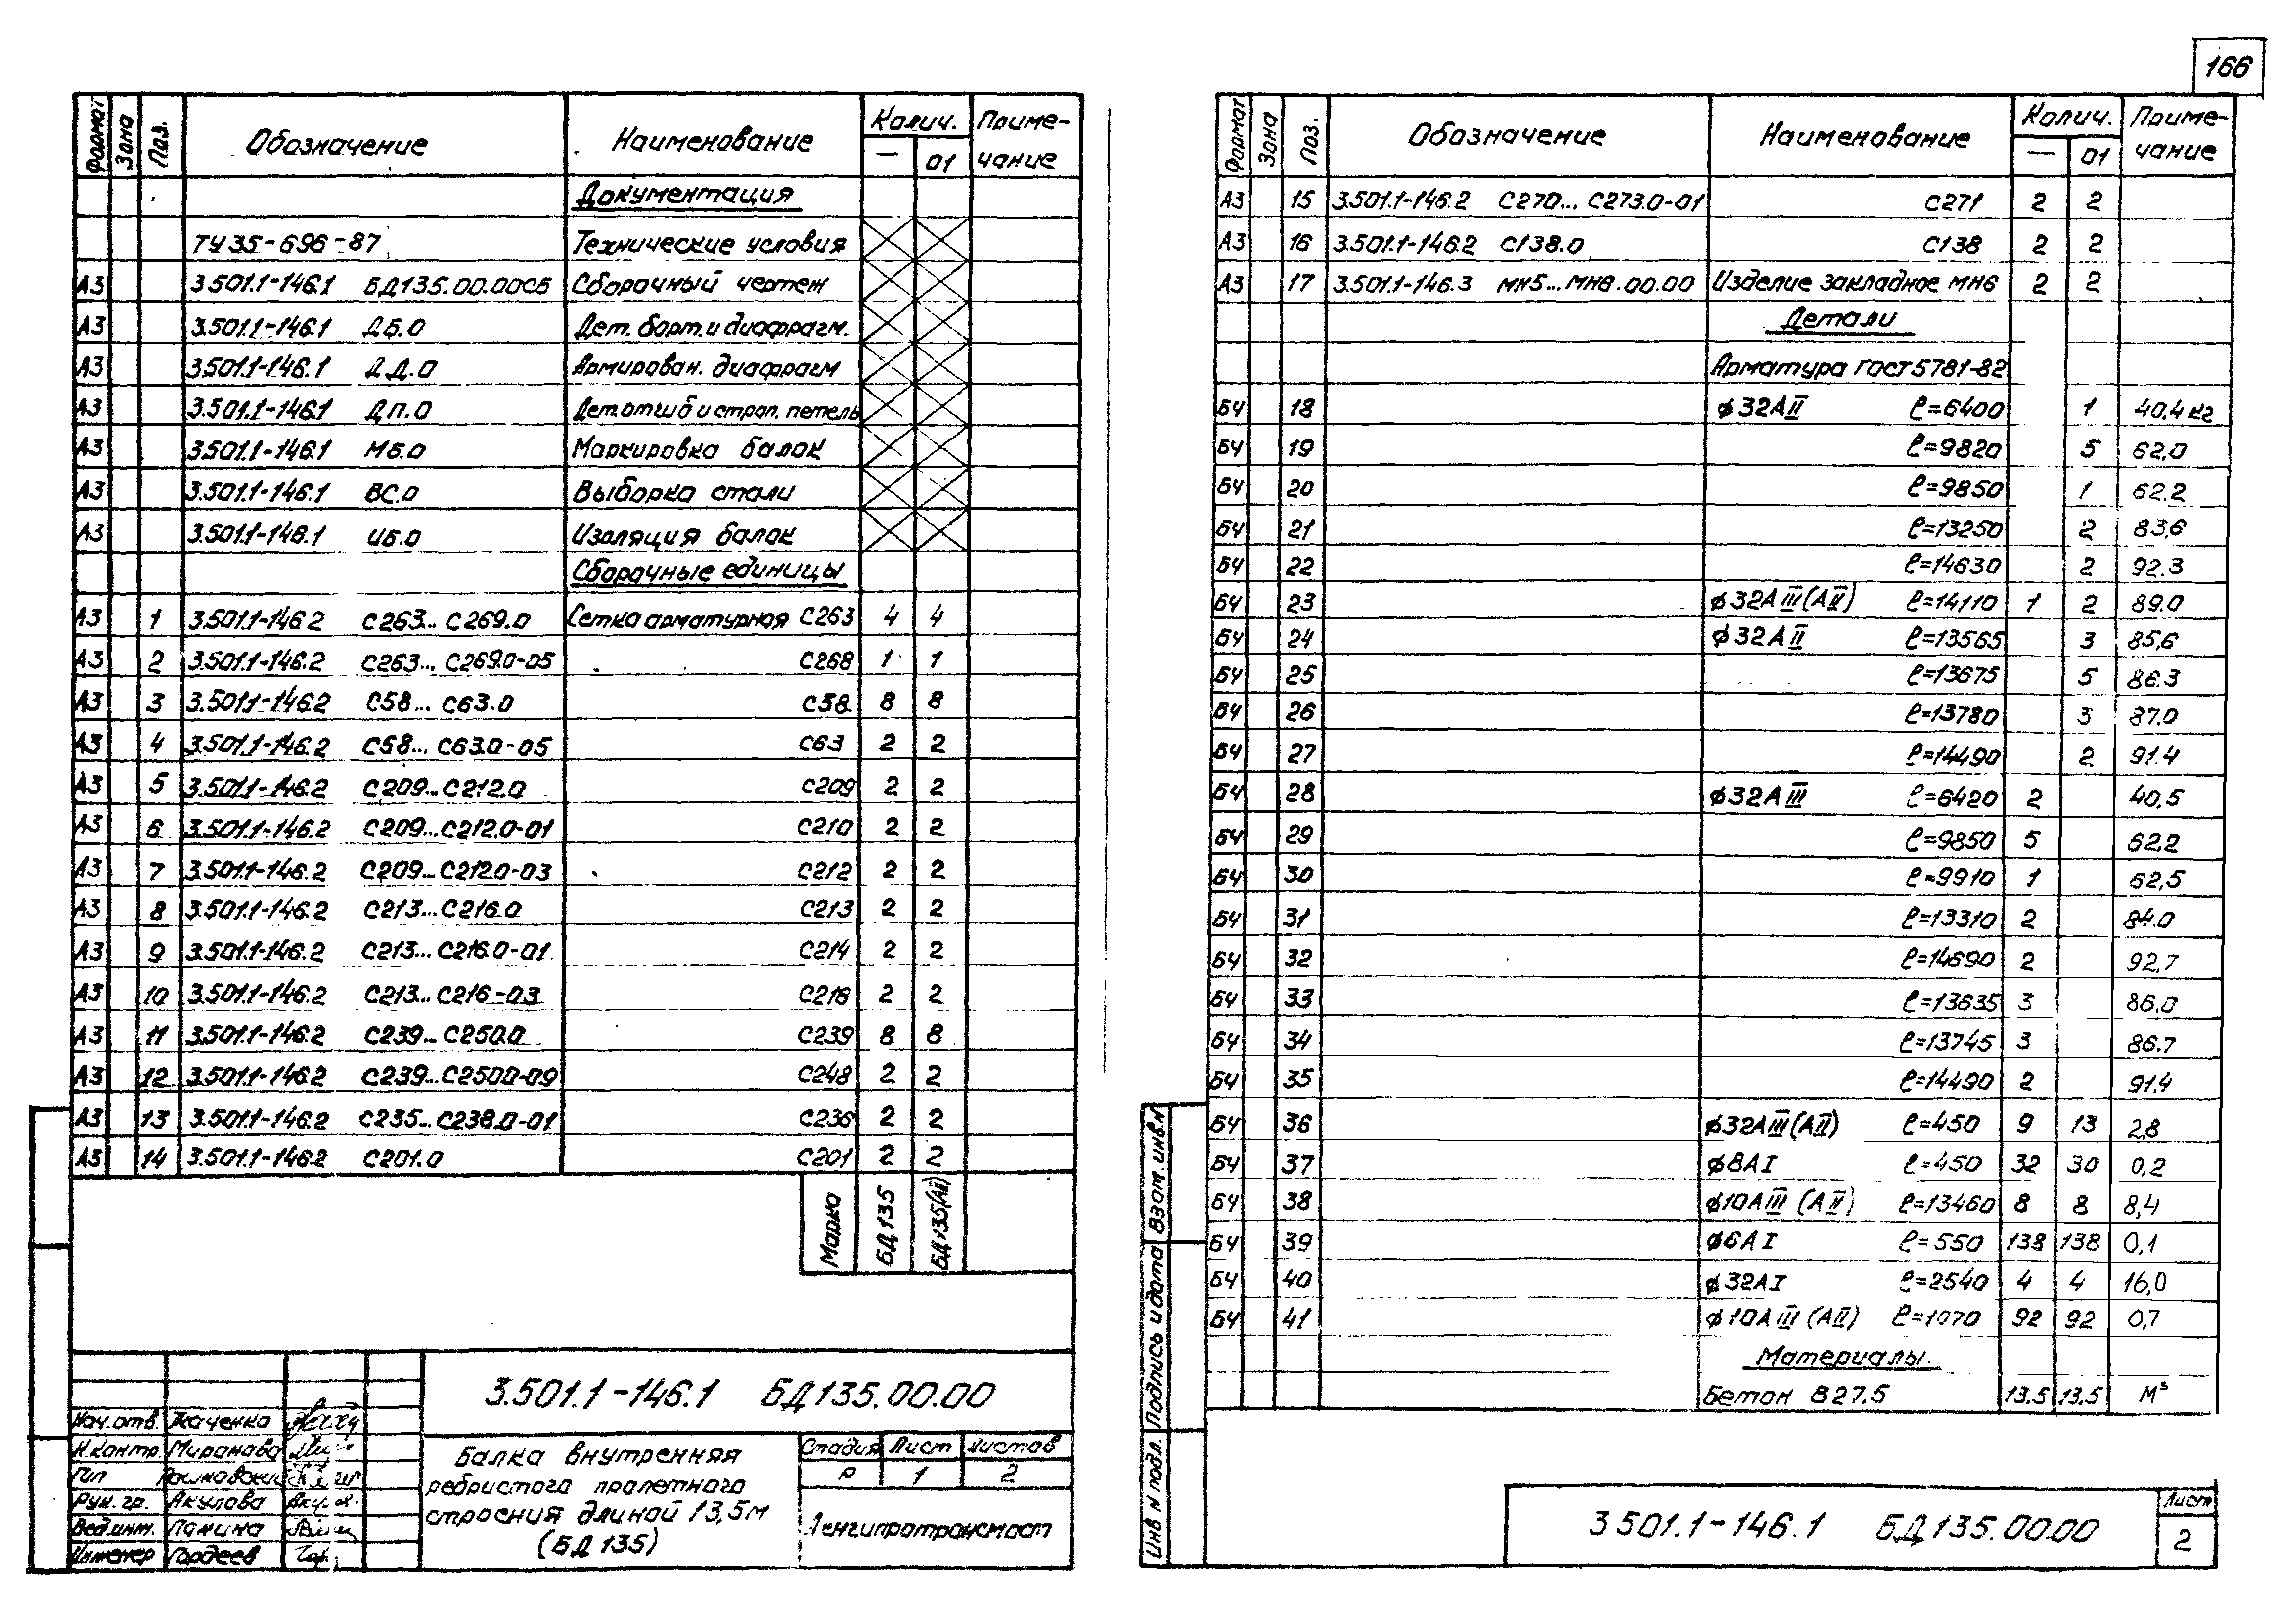 166
Формат Зона Поз. Обозначение Наименование Колич. — 01 Примечание
Документация
ТУ 35-696-87 Технические условия
А3 3.501.1-146.1 БД135.00.00СБ Сборочный чертеж
А3 3.501.1-146.1 ДБ.0 Дет. борт. и диафрагм.
А3 3.501.1-146.1 ДД.0 Армирован. диафрагм
А3 3.501.1-146.1 ДП.0 Дет. отгиб и строп. петель
А3 3.501.1-146.1 МБ.0 Маркировка балок
А3 3.501.1-146.1 ВС.0 Выборка стали
А3 3.501.1-146.1 ИБ.0 Изоляция балок
Сборочные единицы
А3 1 3.501.1-146.2 С263... С269.0 Сетка арматурная С263 4 4
А3 2 3.501.1-146.2 С263... С269.0-05 С268 1 1
А3 3 3.501.1-146.2 С58... С63.0 С58 8 8
А3 4 3.501.1-146.2 С58... С63.0-05 С63 2 2
А3 5 3.501.1-146.2 С209...С212.0 С209 2 2
А3 6 3.501.1-146.2 С209...С212.0-01 С210 2 2
А3 7 3.501.1-146.2 С209...С212.0-03 С212 2 2
А3 8 3.501.1-146.2 С213...С216.0 С213 2 2
А3 9 3.501.1-146.2 С213...С216.0-01 С214 2 2
А3 10 3.501.1-146.2 С213...С216-03 С216 2 2
А3 11 3.501.1-146.2 С239...С250.0 С239 8 8
А3 12 3.501.1-146.2 С239...С250.0-09 С248 2 2
А3 13 3.501.1-146.2 С235...С238.0-01 С236 2 2
А3 14 3.501.1-146.2 С201.0 С201 2 2
Марка БД135 БД135(АII)
3.501.1-146.1 БД135.00.00
Нач.отв. Ткаченко
Н.контр. Миранова
Гип
Рук. гр. Акулова
Вед.инт. Панина
Инженер Гордеев
Балка внутренняя
ребристого пролетного
строения длиной 13,5м
(БД 135)
Стадия Лист Листов
Р 1 2
Ленгипротрансмост
Формат Зона Поз. Обозначение Наименование Колич. — 01 Примечание
А3 15 3.501.1-146.2 С270... С273.0-01 С271 2 2
А3 16 3.501.1-146.2 С138.0 С138 2 2
А3 17 3.501.1-146.3 МН5...МН6.00.00 Изделие закладное МН6 2 2
Детали
Арматура ГОСТ 5781-82
БЧ 18 ϕ32АII ℓ=6400 1 40.4 кг
БЧ 19 ℓ=9820 5 62,0
БЧ 20 ℓ=9850 1 62.2
БЧ 21 ℓ=13250 2 83,6
БЧ 22 ℓ=14630 2 92.3
БЧ 23 ϕ32АIII(АII) ℓ=14110 1 2 89.0
БЧ 24 ϕ32АII ℓ=13565 3 85,6
БЧ 25 ℓ=13675 5 86.3
БЧ 26 ℓ=13780 3 87.0
БЧ 27 ℓ=14490 2 91.4
БЧ 28 ϕ32АIII ℓ=6420 2 40,5
БЧ 29 ℓ=9850 5 62.2
БЧ 30 ℓ=9910 1 62,5
БЧ 31 ℓ=13310 2 84.0
БЧ 32 ℓ=14690 2 92,7
БЧ 33 ℓ=13635 3 86,0
БЧ 34 ℓ=13745 3 86.7
БЧ 35 ℓ=14490 2 91.4
БЧ 36 ϕ32АIII(АII) ℓ=450 9 13 2,8
БЧ 37 ϕ8АI ℓ=450 32 30 0,2
БЧ 38 ϕ10АIII (АII) ℓ=13460 8 8 8,4
БЧ 39 ϕ6АI ℓ=550 138 138 0,1
БЧ 40 ϕ32АI ℓ=2540 4 4 16,0
БЧ 41 ϕ10АIII (АII) 92 92 0,7
Материалы.
Бетон В 27.5 13.5 13.5 м³
Инв N подл. Подпись и дата Взам. инв.N
3.501.1-146.1 БД135.00.00
Лист
2